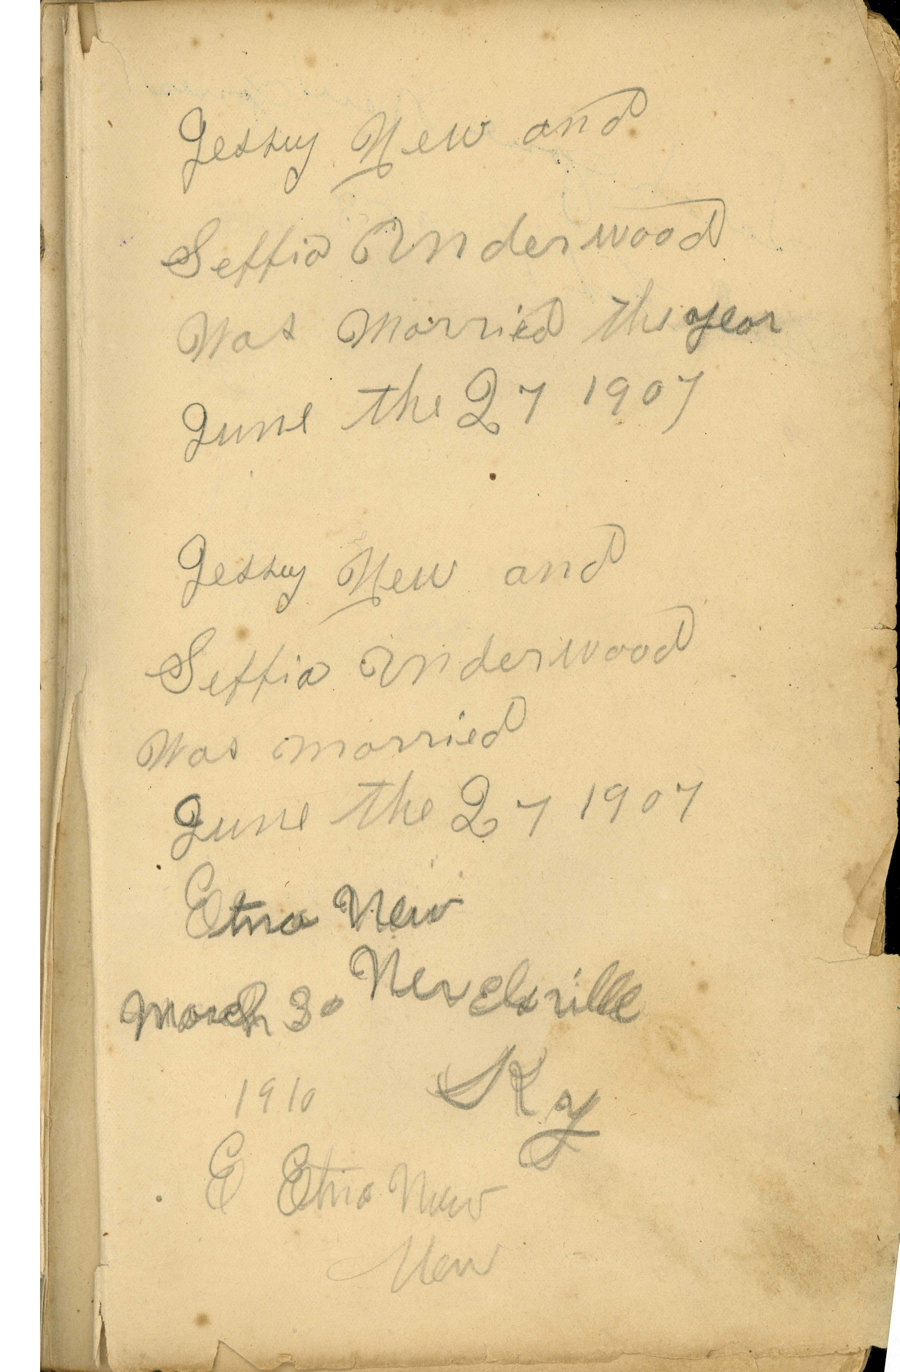 Jessey New and
Seffia Underwood
Was Married the year
June the 27 1907
Jessey New and
Seffia Underwood
Was married
June the 27 1907
Etna New
Nevelsville
March 30
1910 Ky
E Etna New
New